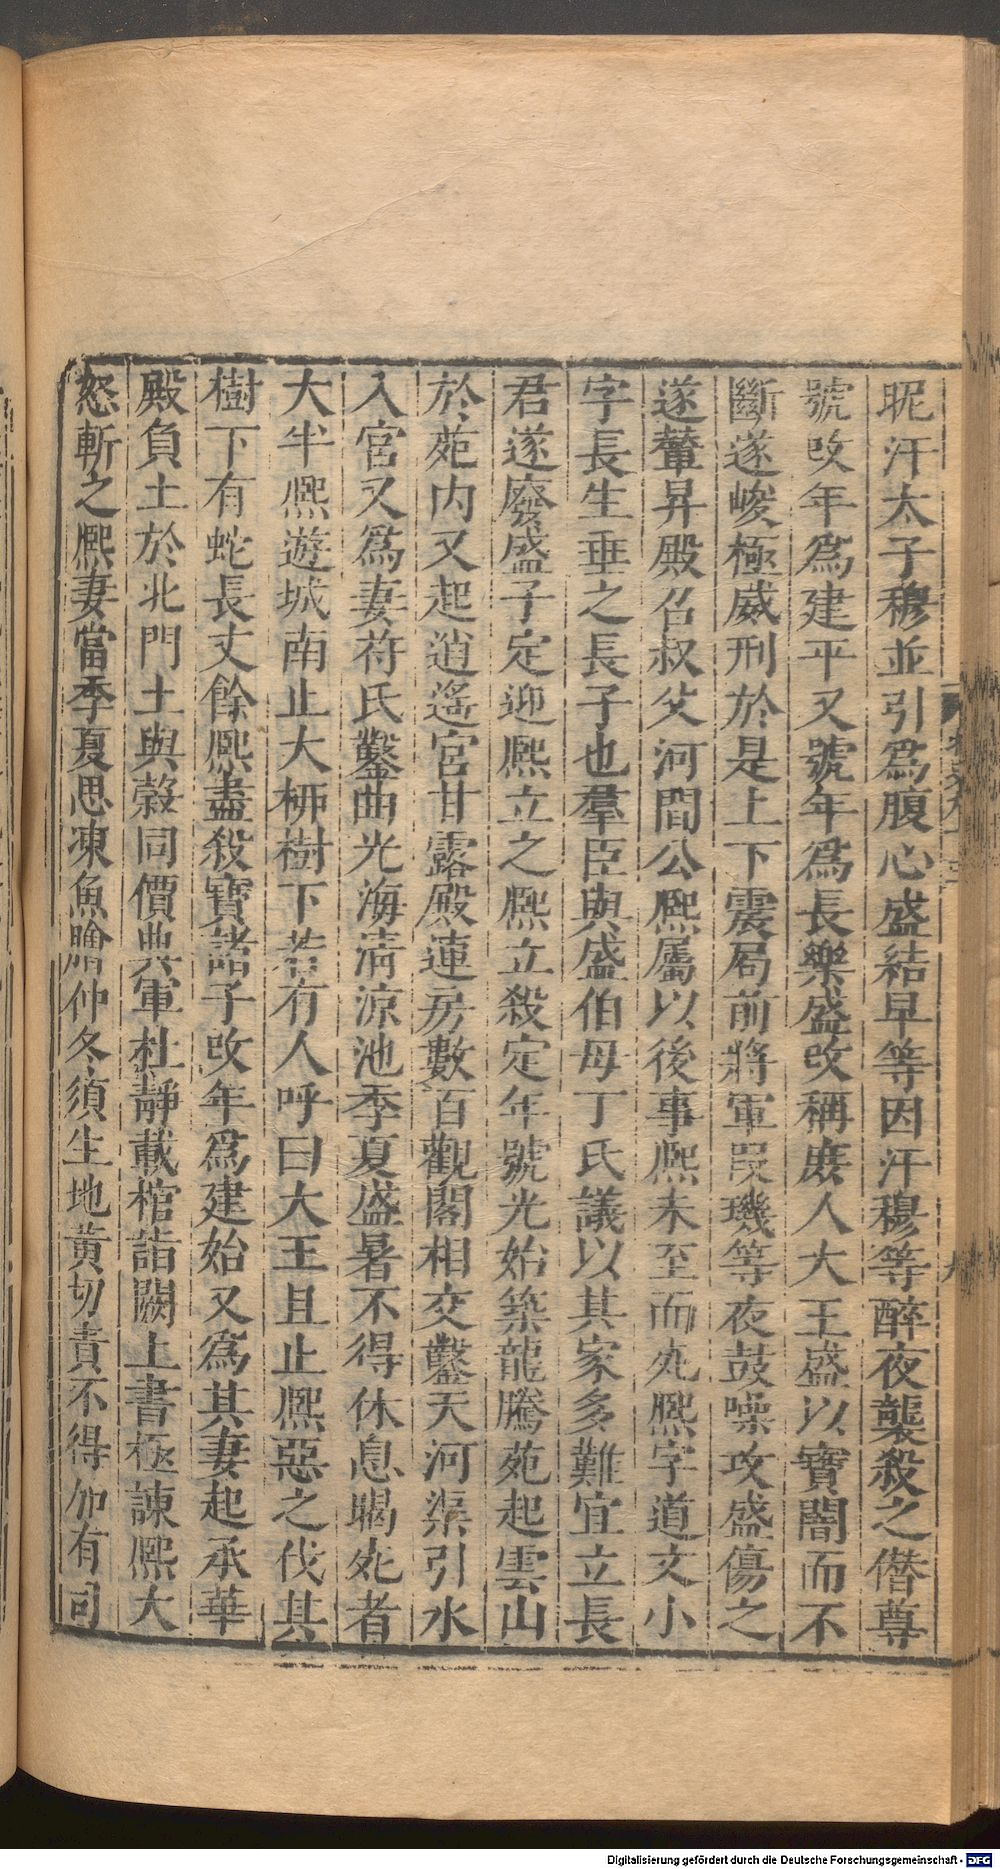 昵汗太子穆並引爲腹心盛結早等因汗穆等醉夜襲殺之僭尊
號改年爲建平又號年爲長樂盛改稱庶人大王盛以寶闇而不
斷遂峻極威刑於是上下震局前將軍段璣等夜鼓噪攻盛傷之
遂輦昇殿召叔父河間公熙屬以後事熙未至而死熙字道文小
字長生垂之長子也羣臣與盛伯母丁氏議以其家多難宜立長
君遂廢盛子定迎熙立之熙立殺定年號光始築龍騰苑起雲山
於苑內又起逍遙宮甘露殿連房數百觀閣相交鑿天河渠引水
入宮又爲妻苻氏鑿曲光海淸涼池季夏盛暑不得休息暍死者
大半熙遊城南止大栁樹下若有人呼曰大王且止熙惡之伐其
樹下有蛇長丈餘熙盡殺寶諸子改年爲建始又爲其妻起承華
殿負土於北門土與穀同價典軍杜靜載棺詣闕上書極諫熙大
怒斬之熙妻當季夏思凍魚膾仲冬須生地黄切責不得加有司
Digitalisierung gefördert durch die Deutsche Forschungsgemeinschaft - DFG